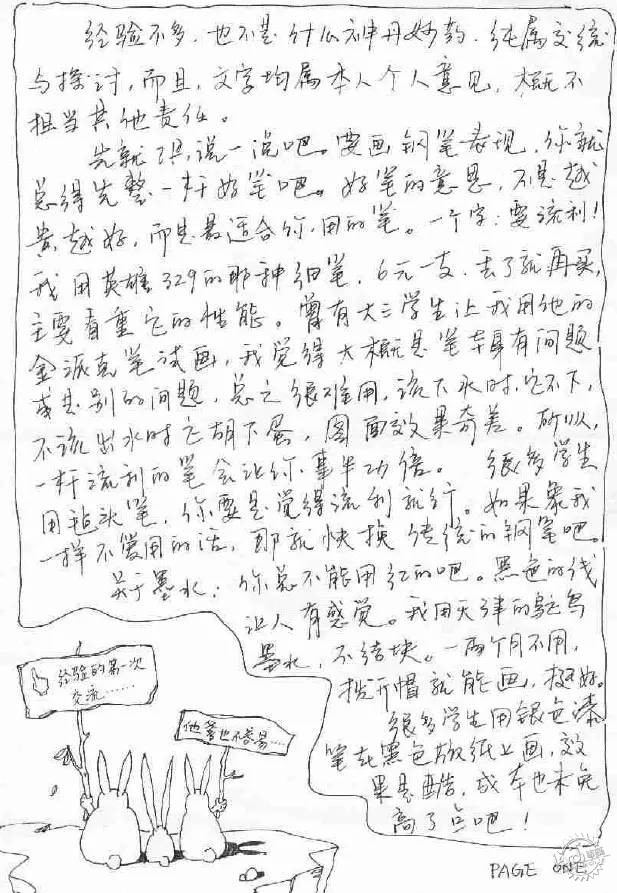 经验不多，也不是什么神丹妙药，纯属交流
与探讨，而且，文字均属本人个人意见，概不
担当其他责任。
先就工具说一说吧。要画钢笔表现，你就
总得先整一杆好笔吧。好笔的意思，不是越
贵越好，而是最适合你用的笔。一个字：要流利！
我用英雄329的那种细笔，6元一支，丢了就再买，
主要看重它的性能。曾有大三学生让我用他的
金派克笔试画，我觉得大概是笔本身有问题
或是别的问题，总之很难用，该下水时，它不下，
不该出水时它胡下蛋，图面效果奇差。所以，
一杆流利的笔会让你事半功倍。 很多学生
用毡头笔，你要是觉得流利就行。如果象我
一样不爱用的话，那就快换传统的钢笔吧。
关于墨水：你总不能用红的吧。黑色的线
让人有感觉。我用天津的鸵鸟
墨水，不结块。一两个月不用，
拔开帽就能画，挺好。
很多学生用银色漆
笔在黑色版纸上画，效
果是酷，成本也未免
高了点吧！
经验的第一次
交流……
他爹也不容易…
PAGE ONE